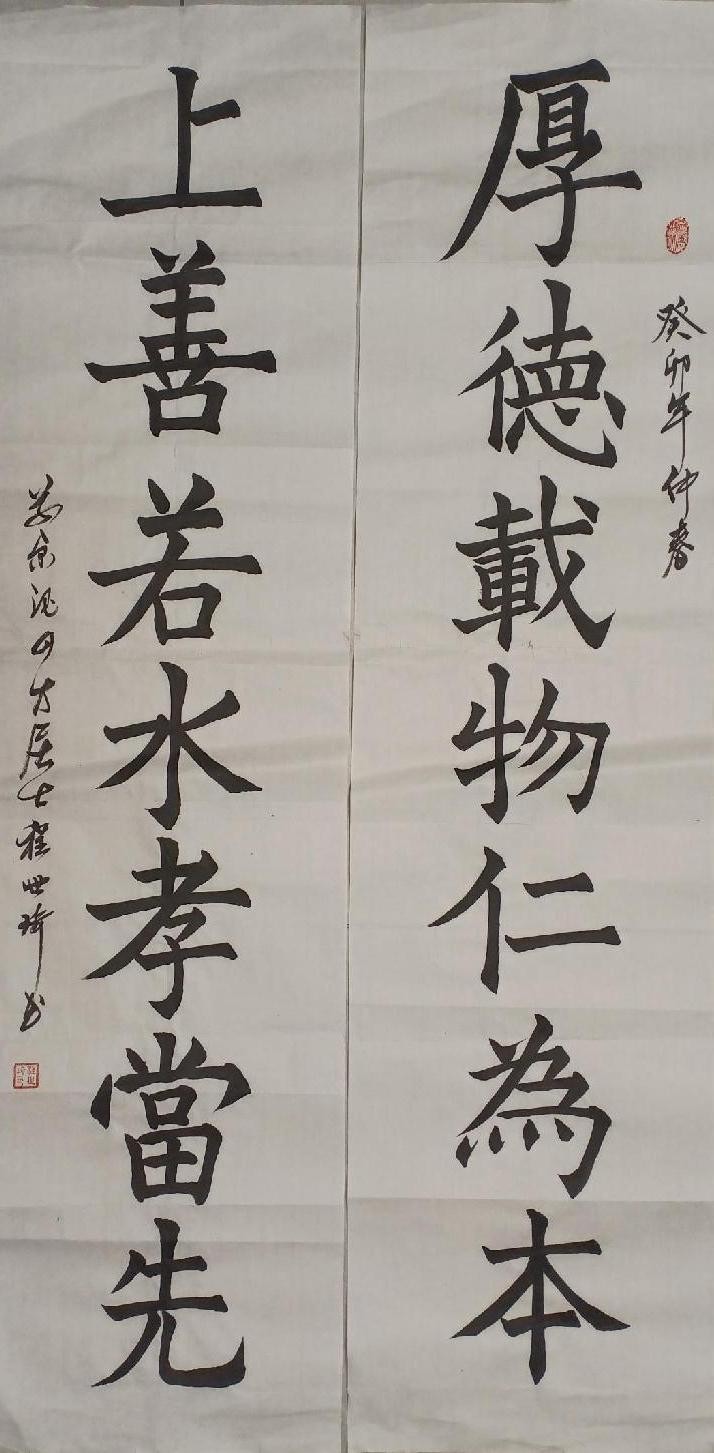 癸卯年仲春
厚德載物仁為本
上善若水孝當先
居士程世琦书